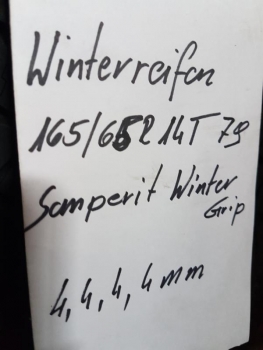 Winterreifen
165/65R 14T 79
Semperit Winter
Grip
4, 4, 4, 4 mm